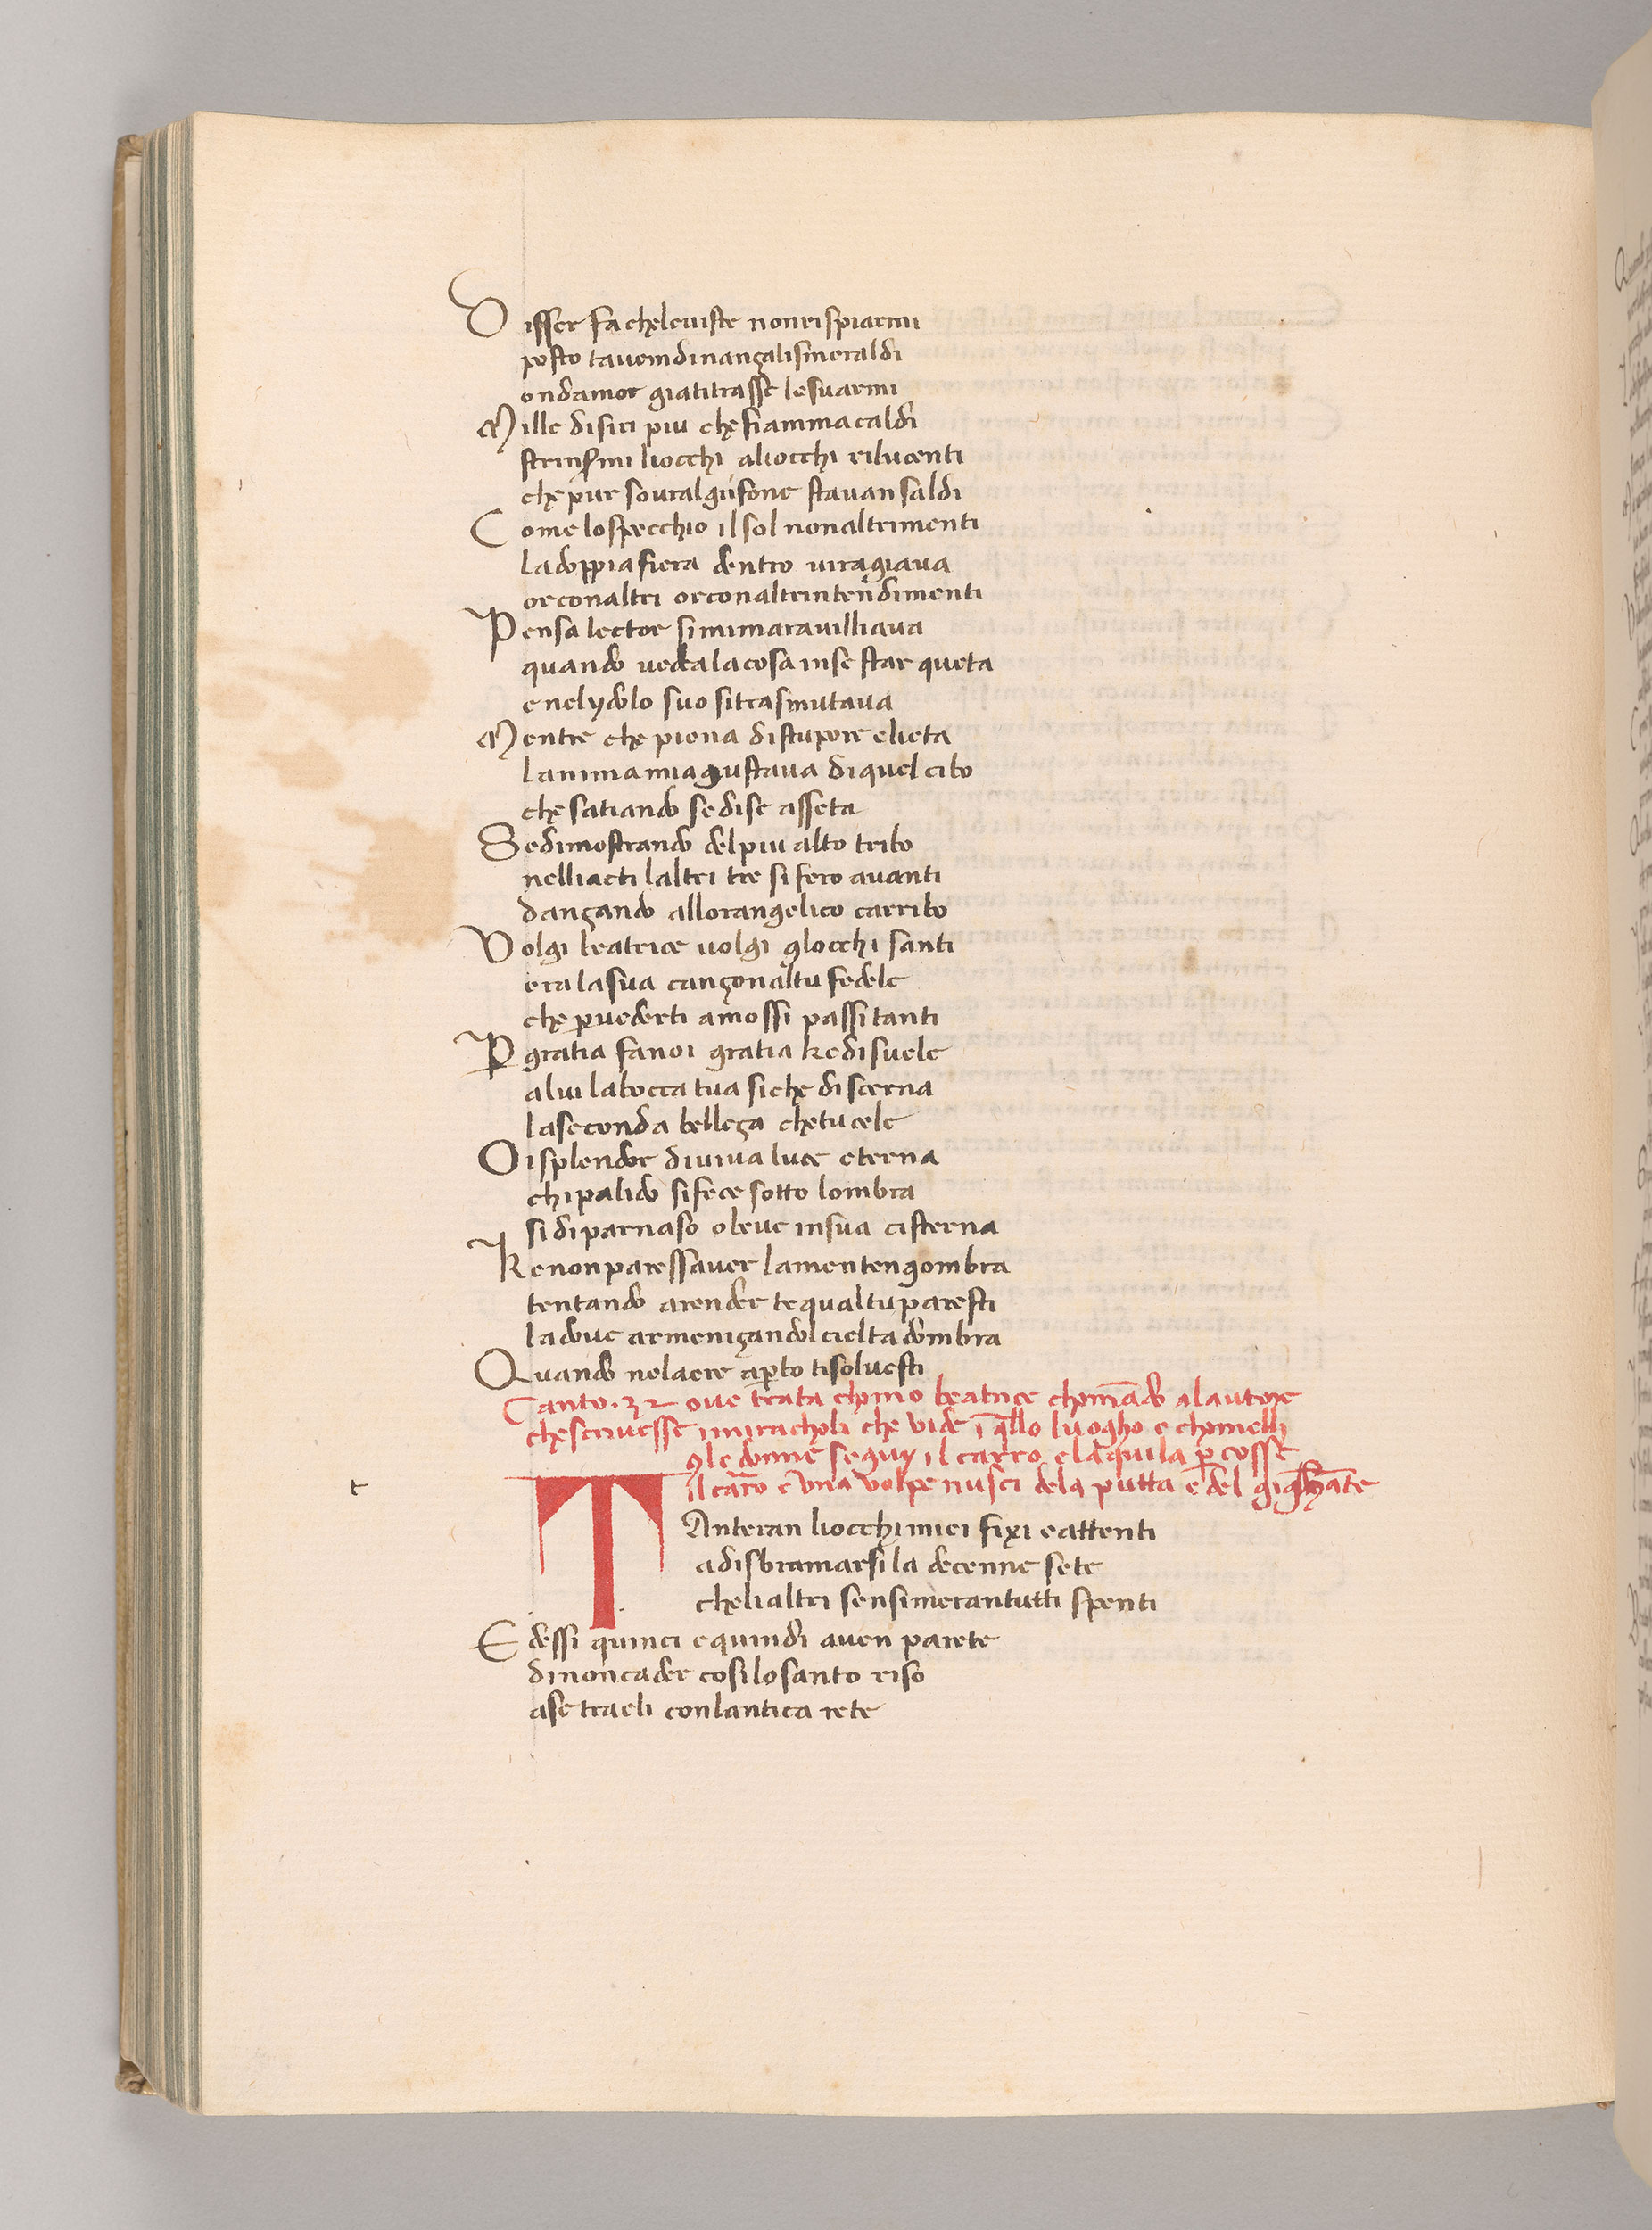 Disser fa che le viste non rispiarmi
posto tavem dinançalismeraldi
ondamor giatitrasse lesuarmi
Mille disiri piu che fiamma caldi
strinsrmi liocchi aliocchi rilucenti
che pur sovralgrifone stavan saldi
Come lo specchio il sol nonaltrimenti
la doppia fiera dentro viragiava
orconaltri orconaltrintendimenti
Pensa lector simimaravilliava
quando vedea lacosa inse star queta
enelydolo suo sitrasmutava
Mentre che piena distupore elieta
lanima mia gustava diquel cibo
che satiando sedise asseta
Sedimostrando delpiu alto tribo
nelliacti laltri tre sifero avanti
dançando allorangelico carribo
Volgi beatrice volgi glocchi santi
era lasua cançonaltu fedele
che pvederti amossi passi tanti
P gratia fanoi gratia ke disuele
alui labocca tua siche discerna
laseconda belleça chetucele
O isplendor diviva luce eterna
chi palido sifece sotto lombra
si diparnaso obeve insua cisterna
Kenonparessaver lamentengombra
tentando arender tequaltuparesti
ladove armeniçandolcieltadombra
Quando nelaere apto tisolvesti
Canto . 32 ove trata chomo beatrice chomādo alautore
chescrivesse imiracholi che vide ī qllo luogho e chomelli
9le donne seguy il carro elaquila pcosse
il caro e una volpe nusci dela putta e del gighāte
TAnteran liocchi miei fixi eattenti
adisbramarsila decenne sete
chelialtri sensimerantutti spenti
Edessi quinci equindi aven parete
dinoncader cosilosanto riso
ase traeli conlantica rete
t